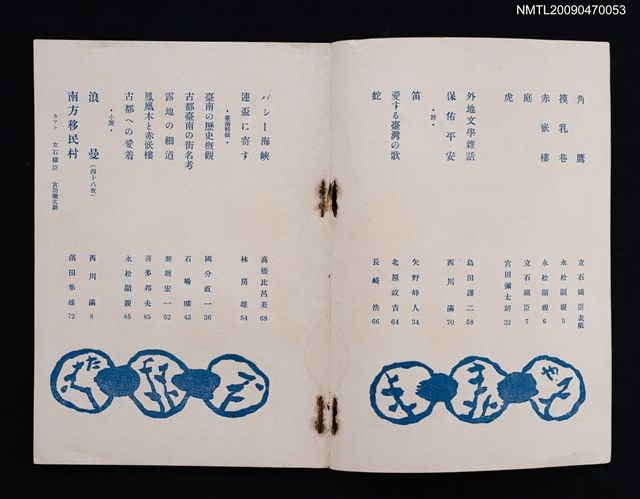 NMTL20090470053
角鷹 立石鐵臣 表紙
摸乳巷 永松顯親 5
赤嵌樓 永松顯親 6
庭 立石鐵臣 7
虎 宮田彌太朗 32
外地文學雜話 島田謹二 58
保佑平安 西川滿 70
・詩・
笛 矢野峰人 34
愛する臺灣の歌 北原政吉 64
蛇 長崎浩 66
バシー海峽 高橋比呂美 68
連盃に寄す 林房雄 54
・臺南特輯・
臺南の歷史槪觀 國分直一 36
古都臺南の街名考 石暘睢 43
露地の細道 新垣宏一 52
鳳凰木と赤嵌樓 喜多邦夫 85
古都への愛着 永松顯親 85
・小說・
浪曼(四十八枚) 西川滿 8
南方移民村 濱田隼雄 72
カツト 立石鐵臣 宮田彌太朗